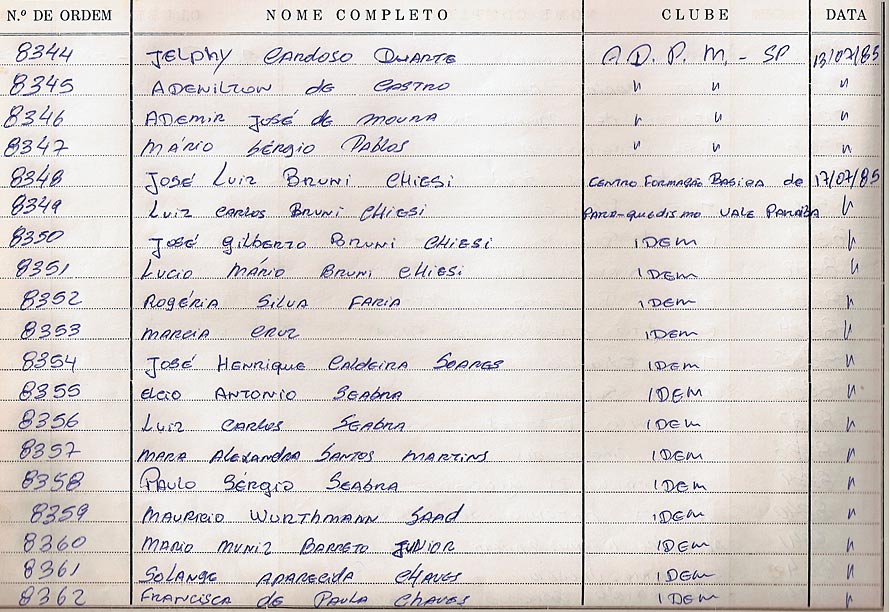 N.º DE ORDEM NOME COMPLETO CLUBE DATA
8344 JELPHY CARDOSO DUARTE A.D.P.M. - SP 13/07/85
8345 ADENILTON de CASTRO " " "
8346 ADEMIR JOSÉ de MOURA " " "
8347 MÁRIO SÉRGIO PABLOS " " "
8348 JOSÉ LUIZ BRUNI CHIESI CENTRO FORMAÇÃO BASICA de 17/07/85
8349 LUIZ CARLOS BRUNI CHIESI PARA-quedismo VALE PARAIBA "
8350 JOSÉ GILBERTO BRUNI CHIESI IDEM "
8351 LUCIO MÁRIO BRUNI CHIESI IDEM "
8352 ROGÉRIA SILVA FARIA IDEM "
8353 MARCIA CRUZ IDEM "
8354 JOSÉ HENRIQUE CALDEIRA SOARES IDEM "
8355 ELCIO ANTONIO SEABRA IDEM "
8356 LUIZ CARLOS SEABRA IDEM "
8357 MARA ALEXANDRA SANTOS MARTINS IDEM "
8358 PAULO SÉRGIO SEABRA IDEM "
8359 MAURICIO WURTHMANN SAAD IDEM "
8360 MARIO MUNIZ BARRETO JUNIOR IDEM "
8361 SOLANGE APARECIDA CHAVES IDEM "
8362 FRANCISCA de PAULA CHAVES IDEM "